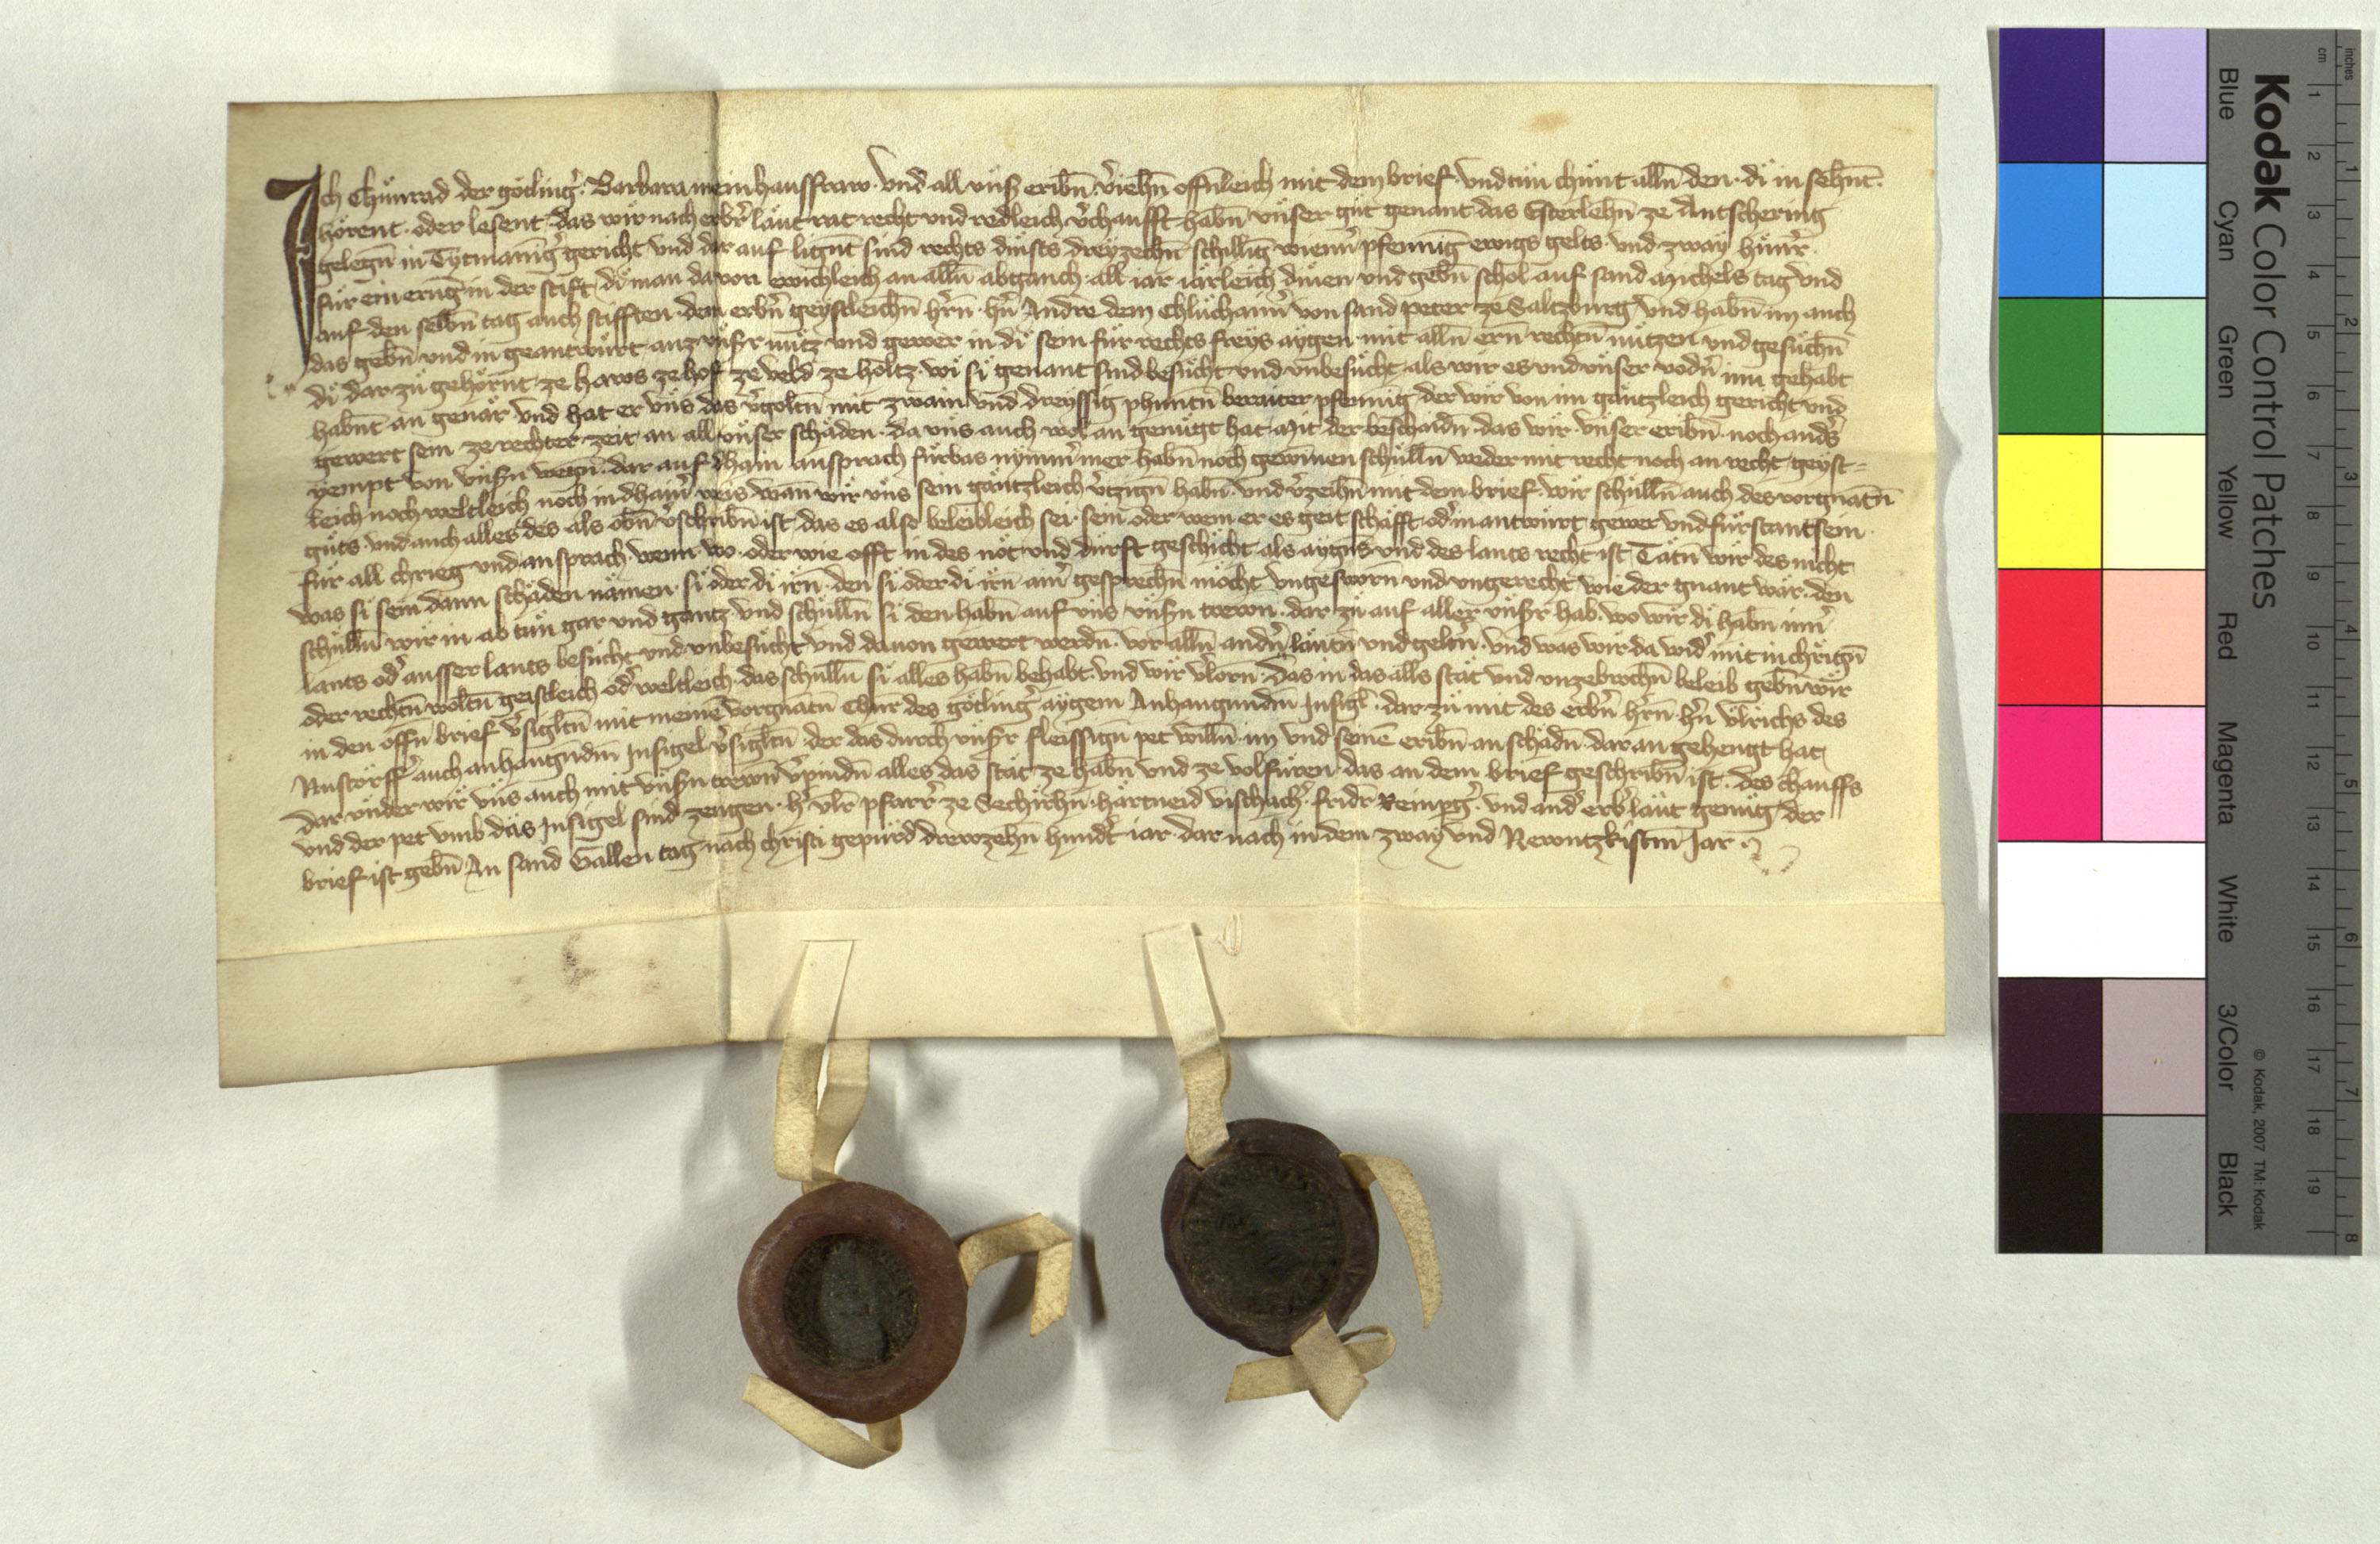 Ich Chünrad der götling̉ · Barbara mein hausfraw · vnd all vnß eribn̄ v̉iehn̄ offnleich mit dem brief · vnd tün chünt alln̄ den · di in sehnt̄ ·
hörent · oder lesent · das wir nach erbr̉ läut rat recht vnd redleich v̉chaufft habn̄ vnser güt genant das Esterlehn̄ ze Antschering
gelegn̄ in Tytmanig̉ gericht vnd dar auf lignt̄ sind rechts dinsts dreyzechn̄ schillig wienn̉ pfennig ewigs gelts · vnd zway hünr̉ ·
für ein erung in der stift · di man da von ewichleich an alln̄ abganch · all iar iärleich dinen vnd gebn̄ schol auf sand Michels tag vnd
auf den selbn̄ tag auch stifften · dem erbn̉ geystleichn̄ hr̉n · hn̉ Andre dem Chluchaim̉ von sand peter ze Saltzburg vnd habn̄ im auch
das gebn̄ vnd in geantwürt auz vnsr̉ nutz vnd gewer in di sein für rechts freys aygen · mit alln̄ ern̄ rechtn̄ nützen vnd gesüchn̄
di dar zü gehörnt̄ · ze haws ze hof ze veld ze holtz · wi si genant sind besücht vnd vnbesücht · als wir es vnd vnser vodn̉ inn gehabt
habnt̄ an geuär · vnd hat er vns das v̉goltn̄ mit zwain vnd dreyssig phuntn̄ beraiter pfennig der wir von im gäntzleich gericht vnd
gewert sein ze rechter zeit an all vnser schäden · da vns auch wol an genügt hat Mit der beschaidn̄ · das wir · vnser eribn̄ · noch ands̉
yempt von vnsn̉ wegn̄ · dar auf dhain ansprach fürbas nymm̉ mer habn̄ noch gewinnen schulln̄ weder mit recht noch an recht · geyst=
leich noch weltleich noch in dhain̉ weis · wan wir vns sein gäntzleich v̉tzign̄ habn̄ · vnd v̉zeihn̄ mit dem brief · wir schulln̄ auch des vorgnatn̄
güts · vnd auch alles des als obn̄ v̉schribn̄ ist · das es also beleibleich sei · sein oder wem er es geit schafft · od̉ in antwürt gewer vnd fürstant sein ·
für all chrieg vnd ansprach · wenn · wo · oder wie offt in des nöt vnd dürft geschicht · als aygns vnd des lants recht ist Tätn̄ wir des nicht
was si sein dann schäden nämen · si oder di irn̄ · den si oder di irn̄ ain̉ gesprechn̄ möcht vngesworn̄ vnd vngerecht wie der gnant wär · den
schulln̄ wir in ab tün gar vnd gantz · vnd schulln̄ si den habn̄ auf vns vnsn̉ trewn̄ · dar zü auf aller vnsr̉ hab · wo wir di habn̄ inn̉
lants od̉ ausser lants besücht vnd vnbesücht vnd dauon gewert werdn̄ · vor alln̄ andn̉ läutn̄ vnd geltn̉ · vnd was wir da wid̉ mit in chrigtn̄
oder rechtn̄ woltn̄ geistleich od̉ weltleich · das schulln̄ si alles habn̄ behabt · vnd wir v̉lorn̄ · Das in das alls stät vnd vnzebrochn̄ beleib gebn̄ wir
in den offn̄ brief v̉sigltn̄ mit meine vorgnatn̄ Chünr̄ des götling̉ aygem Anhangundm̄ Insigl̄ · dar zü mit des erbn̉ hr̉n · hn̉ vlrichs des
Nustörff̉ auch anhangndm̄ Insigel v̉sigltn̄ · der das durch vnsr̉ fleissign̄ pet willn̄ · im vnd seinē eribn̄ an schädn̄ · dar an gehengt hat
Dar vnder wir vns auch mit vnsn̉ trewn̄ v̉pindn̄ alles das stät ze habn̄ vnd ze volfüren · das an dem brief geschribn̄ ist · des chauffs
vnd der pet vmb das Insigel sind zeugen · hr̉ vlr̄ pfarr̉ ze Sechirhn̄ · härtneid vischach̉ · fridr̄ Reimpg̉ · vnd and̉ erb̉ läut genüg der
brief ist gebn̄ An sand Gallen tag nach christi gepürd drewzehn̄ hundt̉ iar · dar nach in dem zway vnd Newntzkistm̄ Jar ·
Kodak Color Control Patches
Blue Cyan Green Yellow Red Magenta White 3/Color Black
© Kodak, 2007 TM: Kodak
cm 1 2 3 4 5 6 7 8 9 10 11 12 13 14 15 16 17 18 19
inches 1 2 3 4 5 6 7 8